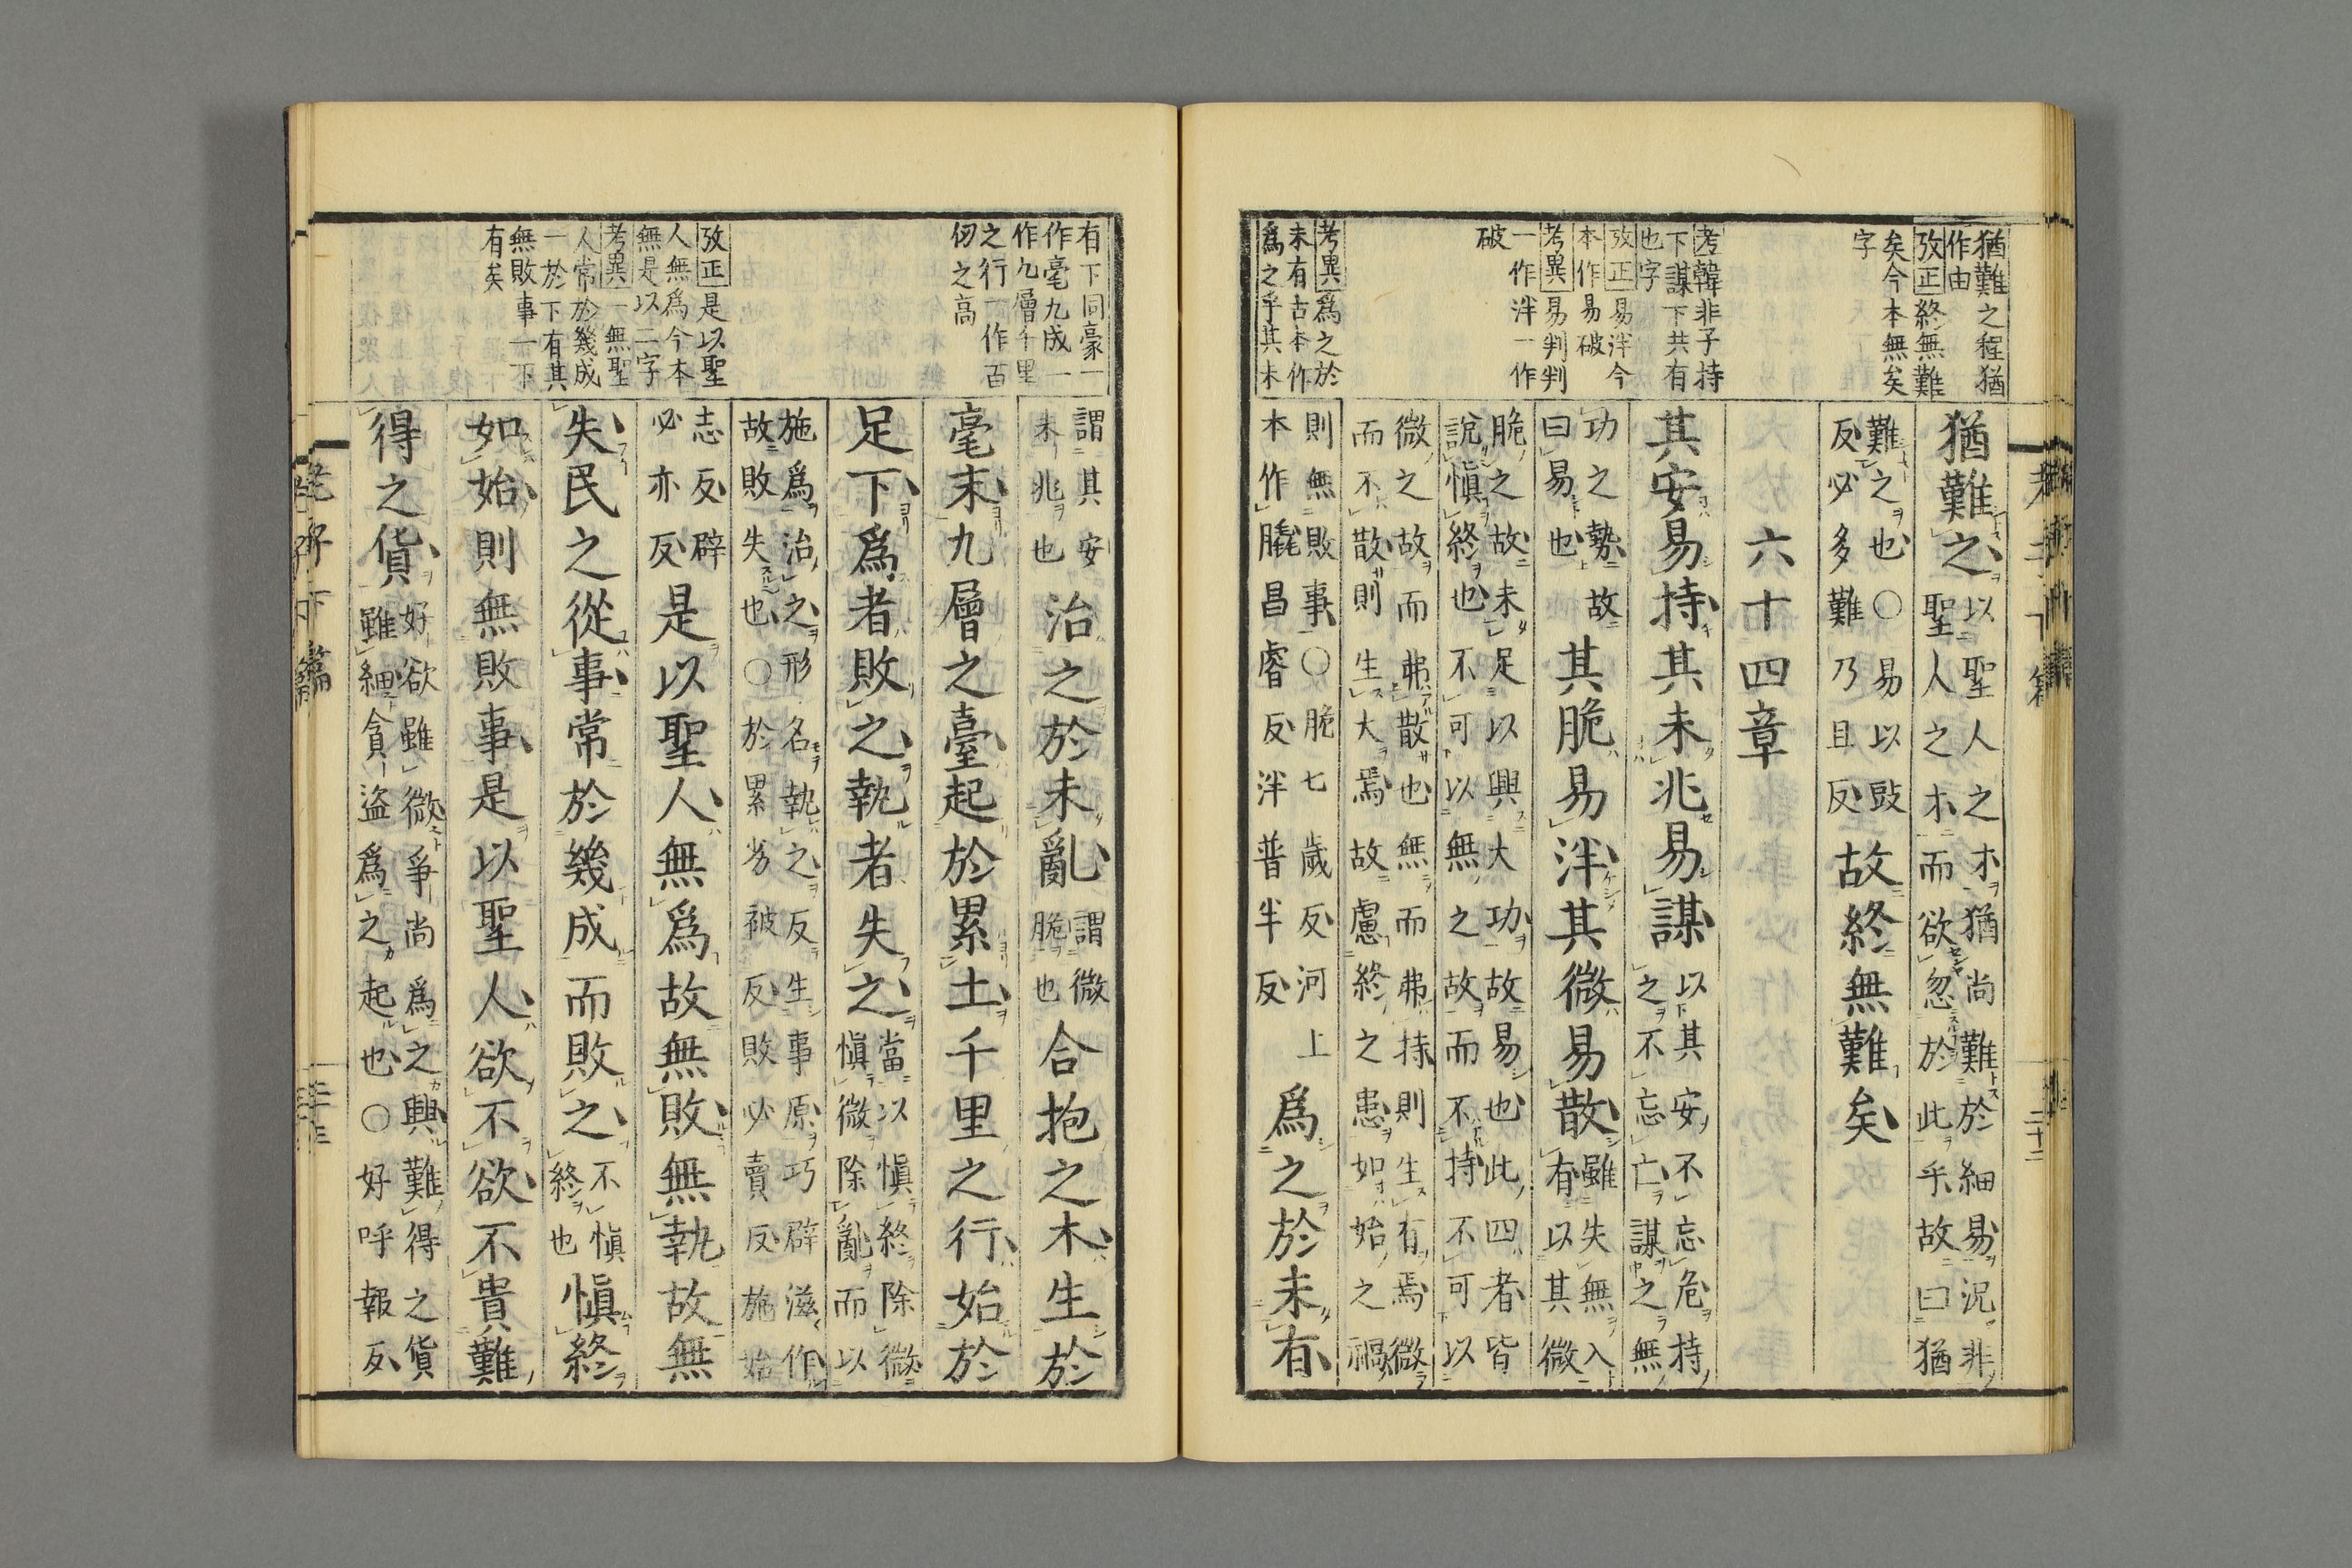 猶難之程猶
作由
攷正終無難
矣今本無矣
字
考韓非子持
下謀下共有
也字
攷正易泮今
本作易破
考異易判判
一作泮一作
破
考異爲之於
未有古本作
爲之乎其未
猶難之
以聖人之才猶尚難於細易況非
聖人之才而欲忽於此乎故曰猶
難之也○易以豉
反必多難乃且反
故終無難矣
六十四章
其安易持其未兆易謀
以其安不忘危持
之不忘亡謀之無
功之勢故
曰易也
其脆易泮其微易散
雖失無入
有以其微
脆之故未足以興大功故易也此四者皆
說愼終也不可以無之故而不持不可以
微之故而弗散也無而弗持則生有焉微
而不散則生大焉故慮終之患如始之禍
則無敗事○脆七歲反河上
本作膬昌睿反泮普半反
爲之於未有
老子下篇
二十二
有下同豪一
作毫九成一
作九層千里
之行一作百
仞之高
攷正是以聖
人無爲今本
無是以二字
考異一無聖
人常於幾成
一於下有其
無敗事一下
有矣
謂其安
未兆也
治之於未亂
謂微
脆也
合抱之木生於
毫末九層之臺起於累土千里之行始於
足下爲者敗之執者失之
當以愼終除微
愼微除亂而以
施爲治之形名執之反生事原巧辟滋作
故敗失也○於累劣被反敗必賣反施始
志反辟
必亦反
是以聖人無爲故無敗無執故無
失民之從事常於幾成而敗之
不愼
終也
愼終
如始則無敗事是以聖人欲不欲不貴難
得之貨
好欲雖微爭尚爲之興難得之貨
雖細貪盜爲之起也○好呼報反
老子下篇